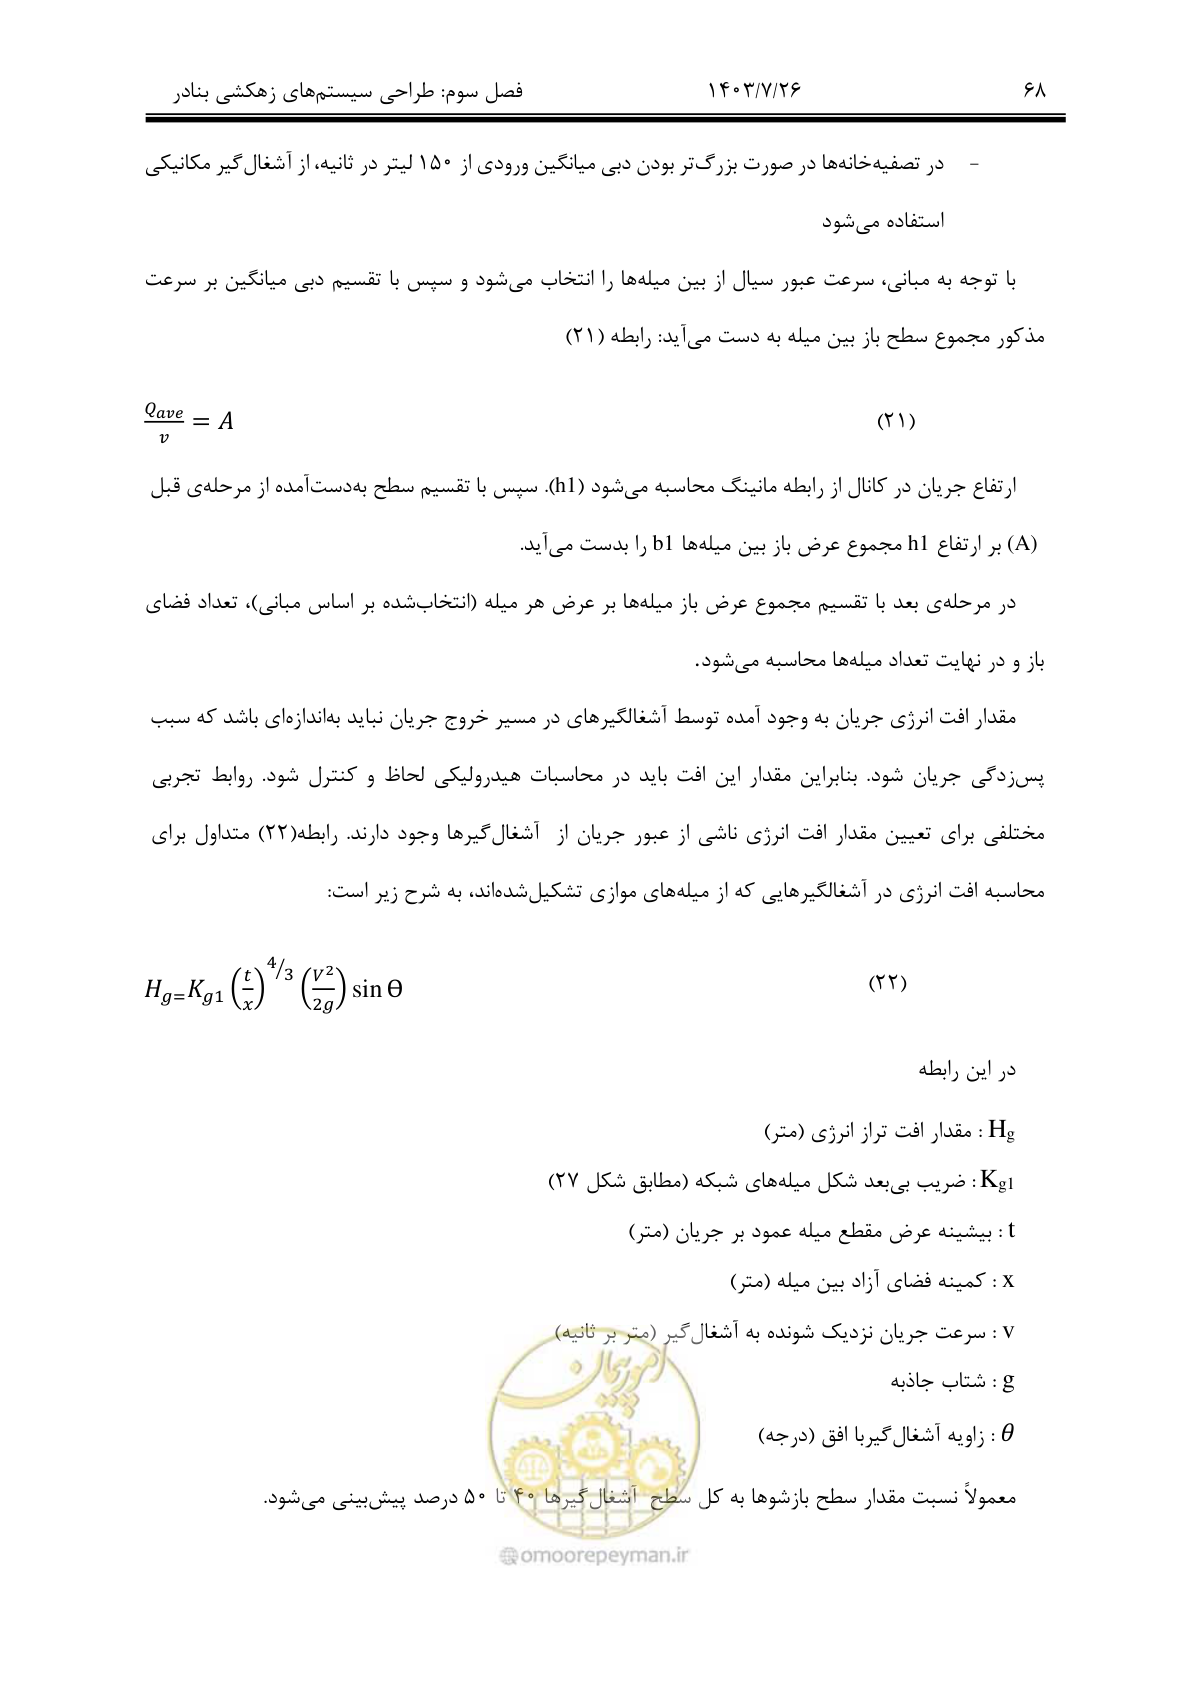 ۶۸ ۱۴۰۳/۷/۲۶ فصل سوم: طراحی سیستم‌های زهکشی بنادر
- در تصفیه‌خانه‌ها در صورت بزرگ‌تر بودن دبی میانگین ورودی از ۱۵۰ لیتر در ثانیه، از آشغال‌گیر مکانیکی
استفاده می‌شود
با توجه به مبانی، سرعت عبور سیال از بین میله‌ها را انتخاب می‌شود و سپس با تقسیم دبی میانگین بر سرعت
مذکور مجموع سطح باز بین میله به دست می‌آید: رابطه (۲۱)
(۲۱) Q_ave/v = A
ارتفاع جریان در کانال از رابطه مانینگ محاسبه می‌شود (h1). سپس با تقسیم سطح به‌دست‌آمده از مرحله‌ی قبل
(A) بر ارتفاع h1 مجموع عرض باز بین میله‌ها b1 را بدست می‌آید.
در مرحله‌ی بعد با تقسیم مجموع عرض باز میله‌ها بر عرض هر میله (انتخاب‌شده بر اساس مبانی)، تعداد فضای
باز و در نهایت تعداد میله‌ها محاسبه می‌شود.
مقدار افت انرژی جریان به وجود آمده توسط آشغالگیرهای در مسیر خروج جریان نباید به‌اندازه‌ای باشد که سبب
پس‌زدگی جریان شود. بنابراین مقدار این افت باید در محاسبات هیدرولیکی لحاظ و کنترل شود. روابط تجربی
مختلفی برای تعیین مقدار افت انرژی ناشی از عبور جریان از آشغال‌گیرها وجود دارند. رابطه(۲۲) متداول برای
محاسبه افت انرژی در آشغالگیرهایی که از میله‌های موازی تشکیل‌شده‌اند، به شرح زیر است:
(۲۲) H_g=K_g1 (t/x)^4/3 (V^2/2g) sin Θ
در این رابطه
Hg : مقدار افت تراز انرژی (متر)
Kg1 : ضریب بی‌بعد شکل میله‌های شبکه (مطابق شکل ۲۷)
t : بیشینه عرض مقطع میله عمود بر جریان (متر)
x : کمینه فضای آزاد بین میله (متر)
v : سرعت جریان نزدیک شونده به آشغال‌گیر (متر بر ثانیه)
g : شتاب جاذبه
θ : زاویه آشغال‌گیربا افق (درجه)
معمولاً نسبت مقدار سطح بازشوها به کل سطح آشغال‌گیرها ۴۰ تا ۵۰ درصد پیش‌بینی می‌شود.
امور پیمان
@omoorepeyman.ir